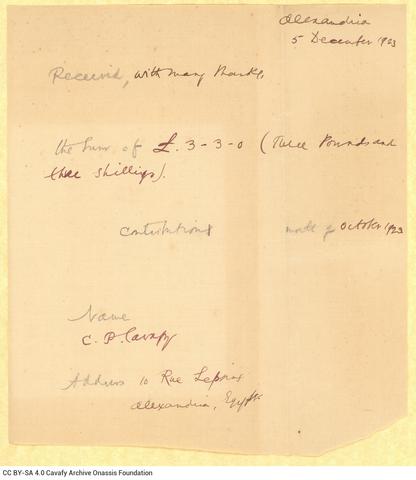 Alexandria
5 December 1923
Received, with many thanks
the sum of £. 3-3-0 (Three Pounds and
three shillings).
contributions month of October 1923
Name
C. P. Cavafy
Address 10 Rue Lepsius
Alexandria, Egypt
CC BY-SA 4.0 Cavafy Archive Onassis Foundation